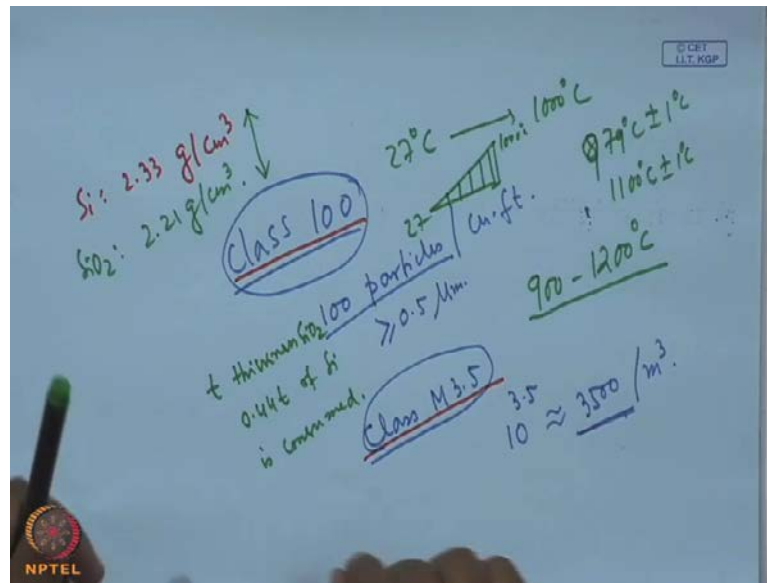 © CET
I.I.T. KGP
Si: 2.33 g/cm³
SiO₂: 2.21 g/cm³.
27°C → 1000°C
1000°C
27
979°C ± 1°C
1100°C ± 1°C
900 - 1200°C
Class 100
100 particles / cu.ft.
≥ 0.5 μm.
t thickness SiO₂
0.44t of Si
is consumed.
Class M 3.5
10^3.5 ≈ 3500 / m³.
NPTEL